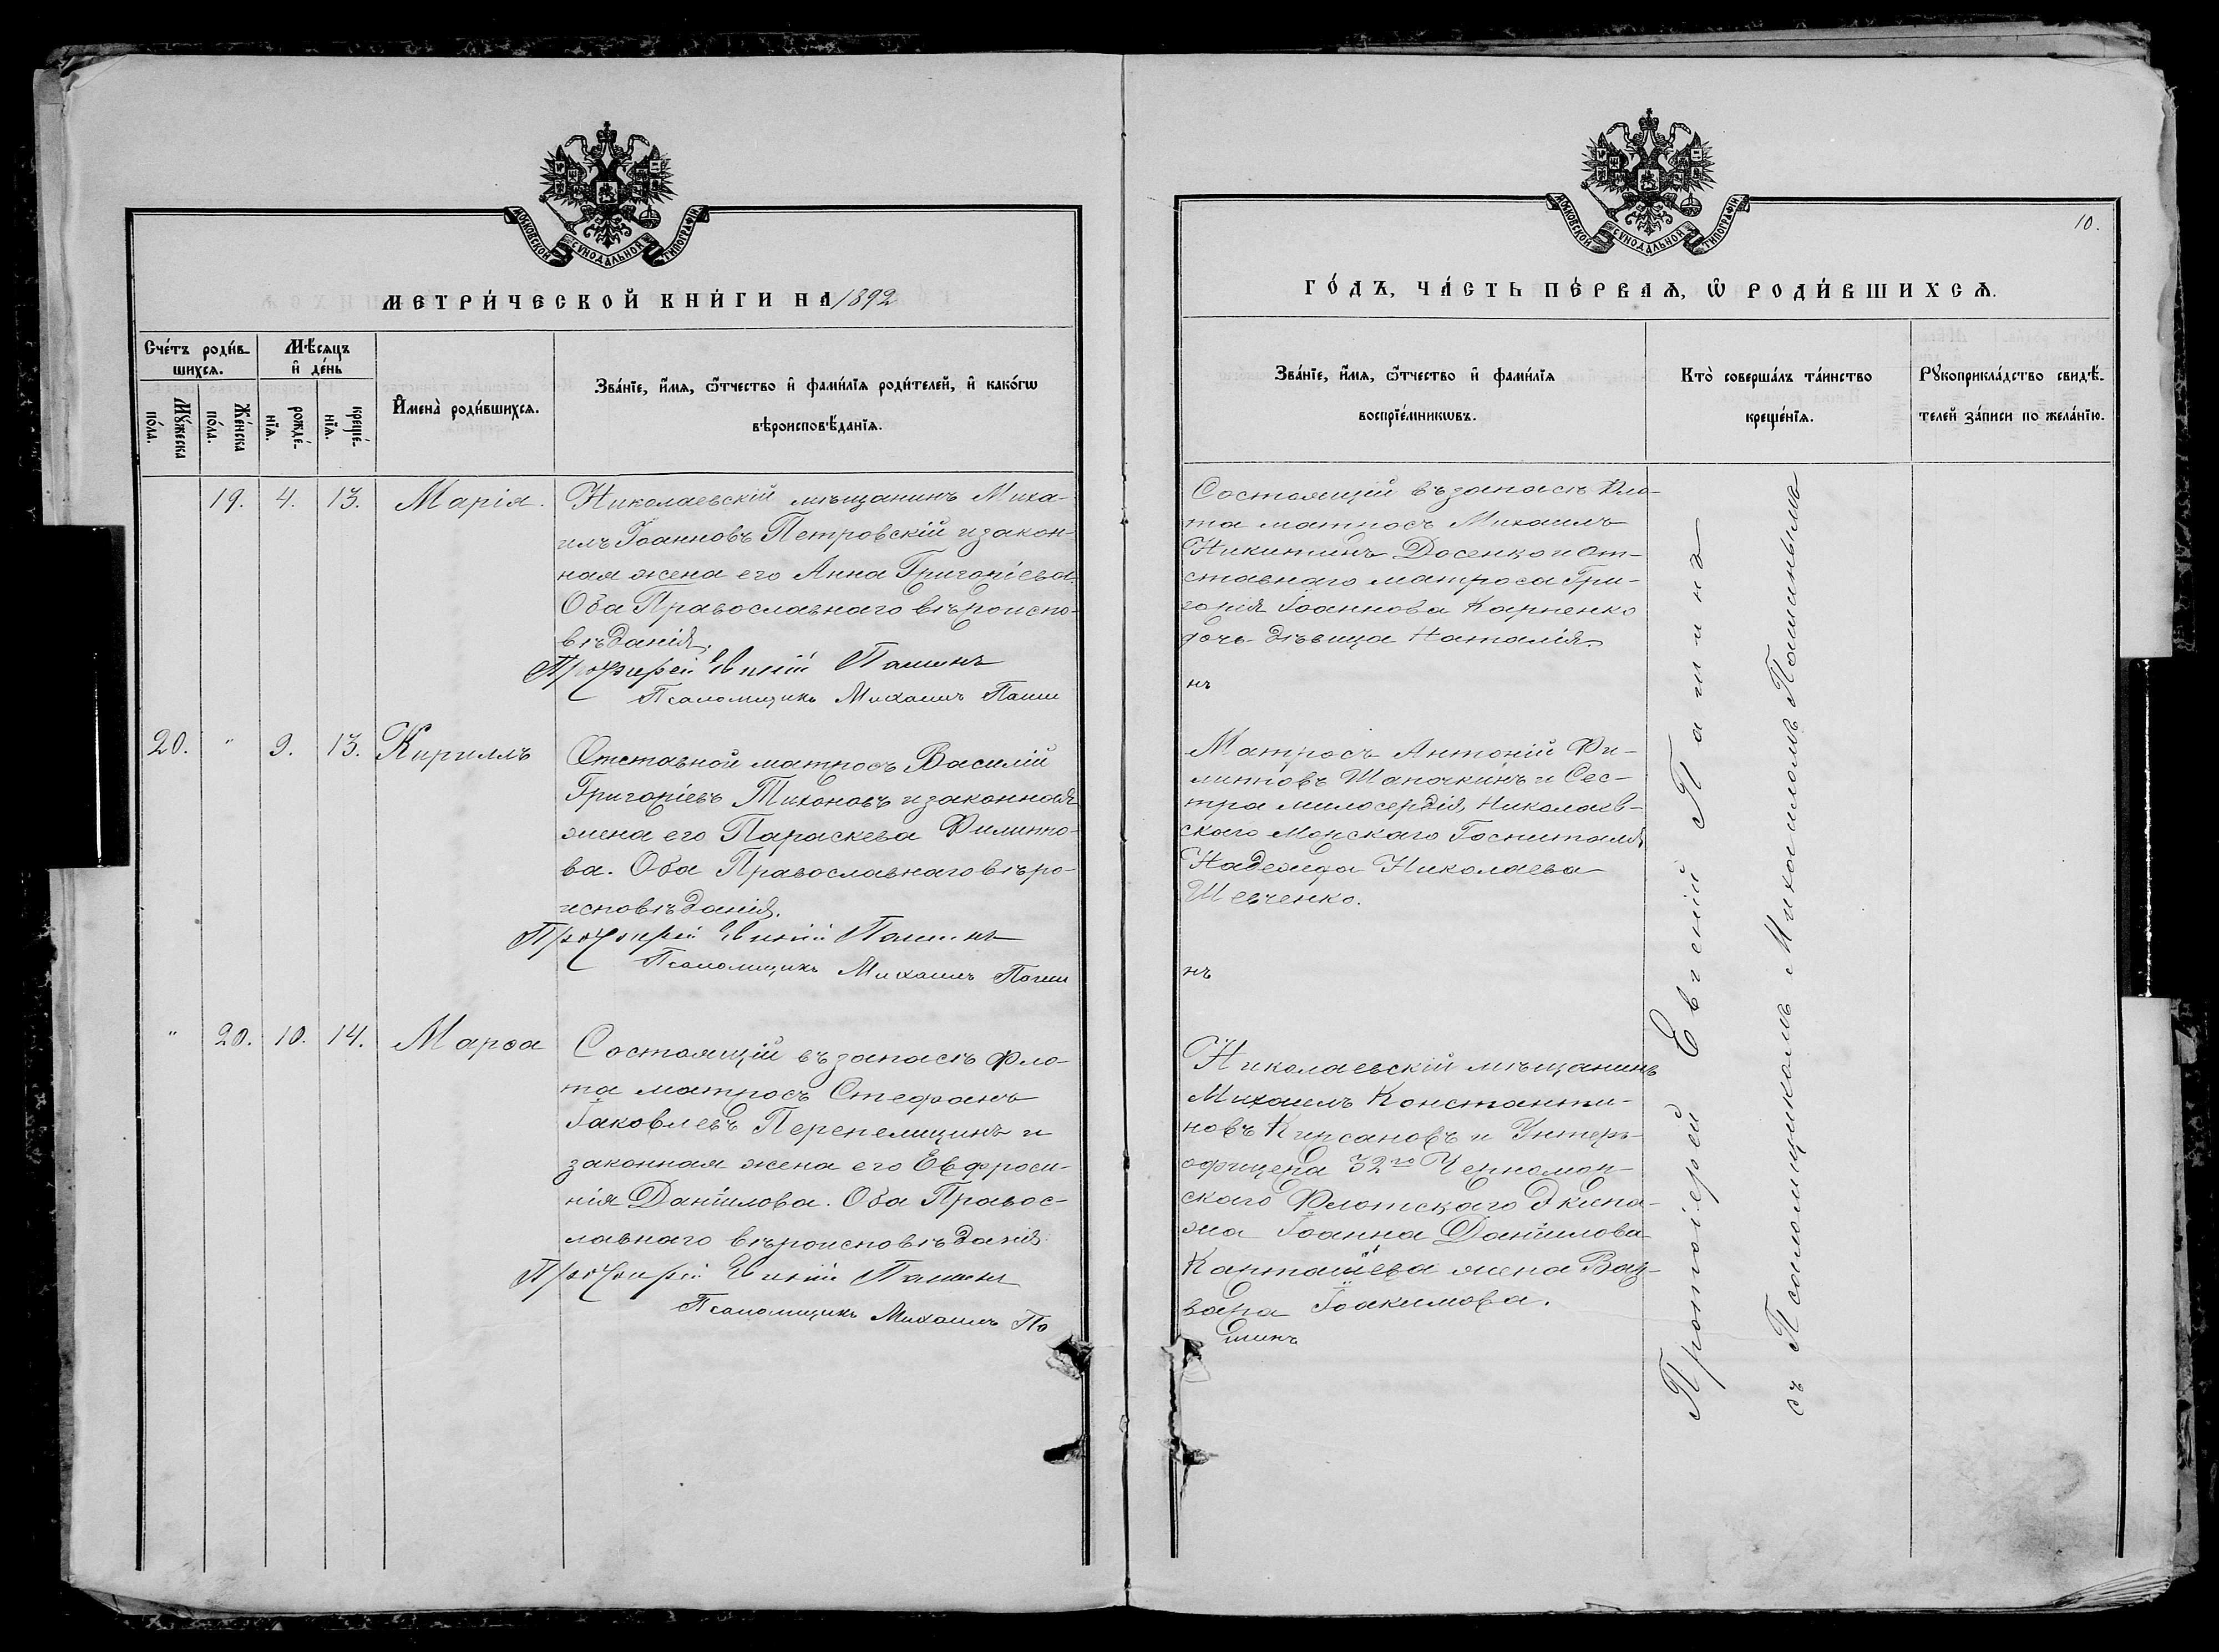 МОСКОВСКОЙ СУНОДАЛЬНОЙ ТИПОГРАФІИ
МЕТРИ́ЧЕСКОЙ КНИ́ГИ НА 1892
Сче́тъ роди́в-
шихсѧ.
Мѣ́сѧцъ
и҆ де́нь
Мꙋ́жеска
по́ла.
Же́нска
по́ла.
рожде́-
нїѧ.
креще́-
нїѧ.
И҆мена̀ роди́вшихсѧ.
Зва́нїе, и҆́мѧ, ѻ҆́тчество и҆ фами́лїѧ роди́телей, и҆ како́гѡ
вѣроисповѣ́данїѧ.
19. 4. 13. Марія.
Николаевскій мѣщанинъ Миха-
илъ Іоанновъ Петровскій и закон-
ная жена его Анна Григоріева.
Оба Православнаго вѣроиспо-
вѣданія.
Протоіерей Евгеній Пашинъ
Псаломщикъ Михаилъ Паши
20. " 9. 13. Кириллъ
Отставной матросъ Василій
Григоріевъ Тихоновъ и законная
жена его Параскева Филиппо-
ва. Оба Православнаго вѣро-
исповѣданія.
Протоіерей Евгеній Пашинъ
Псаломщикъ Михаилъ Паши
" 20. 10. 14. Марѳа
Состоящій въ запасѣ Фло-
та матросъ Стефанъ
Іаковлевъ Перепелицинъ и
законная жена его Евфроси-
нія Даніилова. Оба Правос-
лавнаго вѣроисповѣданія
Протоіерей Евгеній Пашинъ
Псаломщикъ Михаилъ Па
10.
МОСКОВСКОЙ СУНОДАЛЬНОЙ ТИПОГРАФІИ
ГО́ДЪ, ЧА́СТЬ ПЕ́РВАѦ, Ѡ҆ РОДИ́ВШИХСѦ.
Зва́нїе, и҆́мѧ, ѻ҆́тчество и҆ фами́лїѧ
воспрїе́мникѡвъ.
Кто̀ соверша́лъ та́инство
креще́нїѧ.
Рꙋкоприкла́дство свидѣ́-
телей за́писи по жела́нїю.
Состоящій въ запасѣ Фло-
та матросъ Михаилъ
Никитинъ Досенко и От-
ставнаго матроса Гри-
горія Іоаннова Карпенко
дочь дѣвица Наталія.
нъ
Матросъ Антоній Фи-
липповъ Шапочкинъ и Сес-
тра милосердія Николаев-
скаго Морскаго Госпиталя
Надежда Николаева
Шевченко.
нъ
Николаевскій мѣщанинъ
Михаилъ Константи-
новъ Кирсановъ и Унтеръ-
офицера 32го Черномор-
скаго Флотскаго Экипа-
жа Іоанна Даніилова
Карташева жена Вар-
вара Іоакимова.
шинъ
Протоіерей Евгеній Пашинъ
съ Псаломщикомъ Михаиломъ Пашинымъ